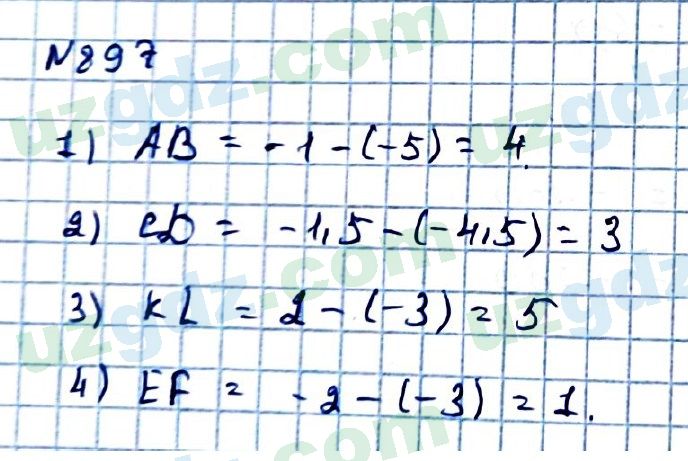 N897
1) AB = -1-(-5) = 4.
2) CD = -1,5-(-4,5) = 3
3) KL = 2-(-3) = 5
4) EF = -2-(-3) = 1.
uzgdz.com
uzgdz
uzgdz.com
uzgdz
uzgdz.com